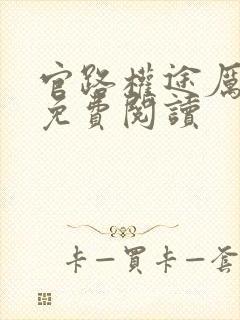 官路權途厲
免費閱讀
卡—買卡—套